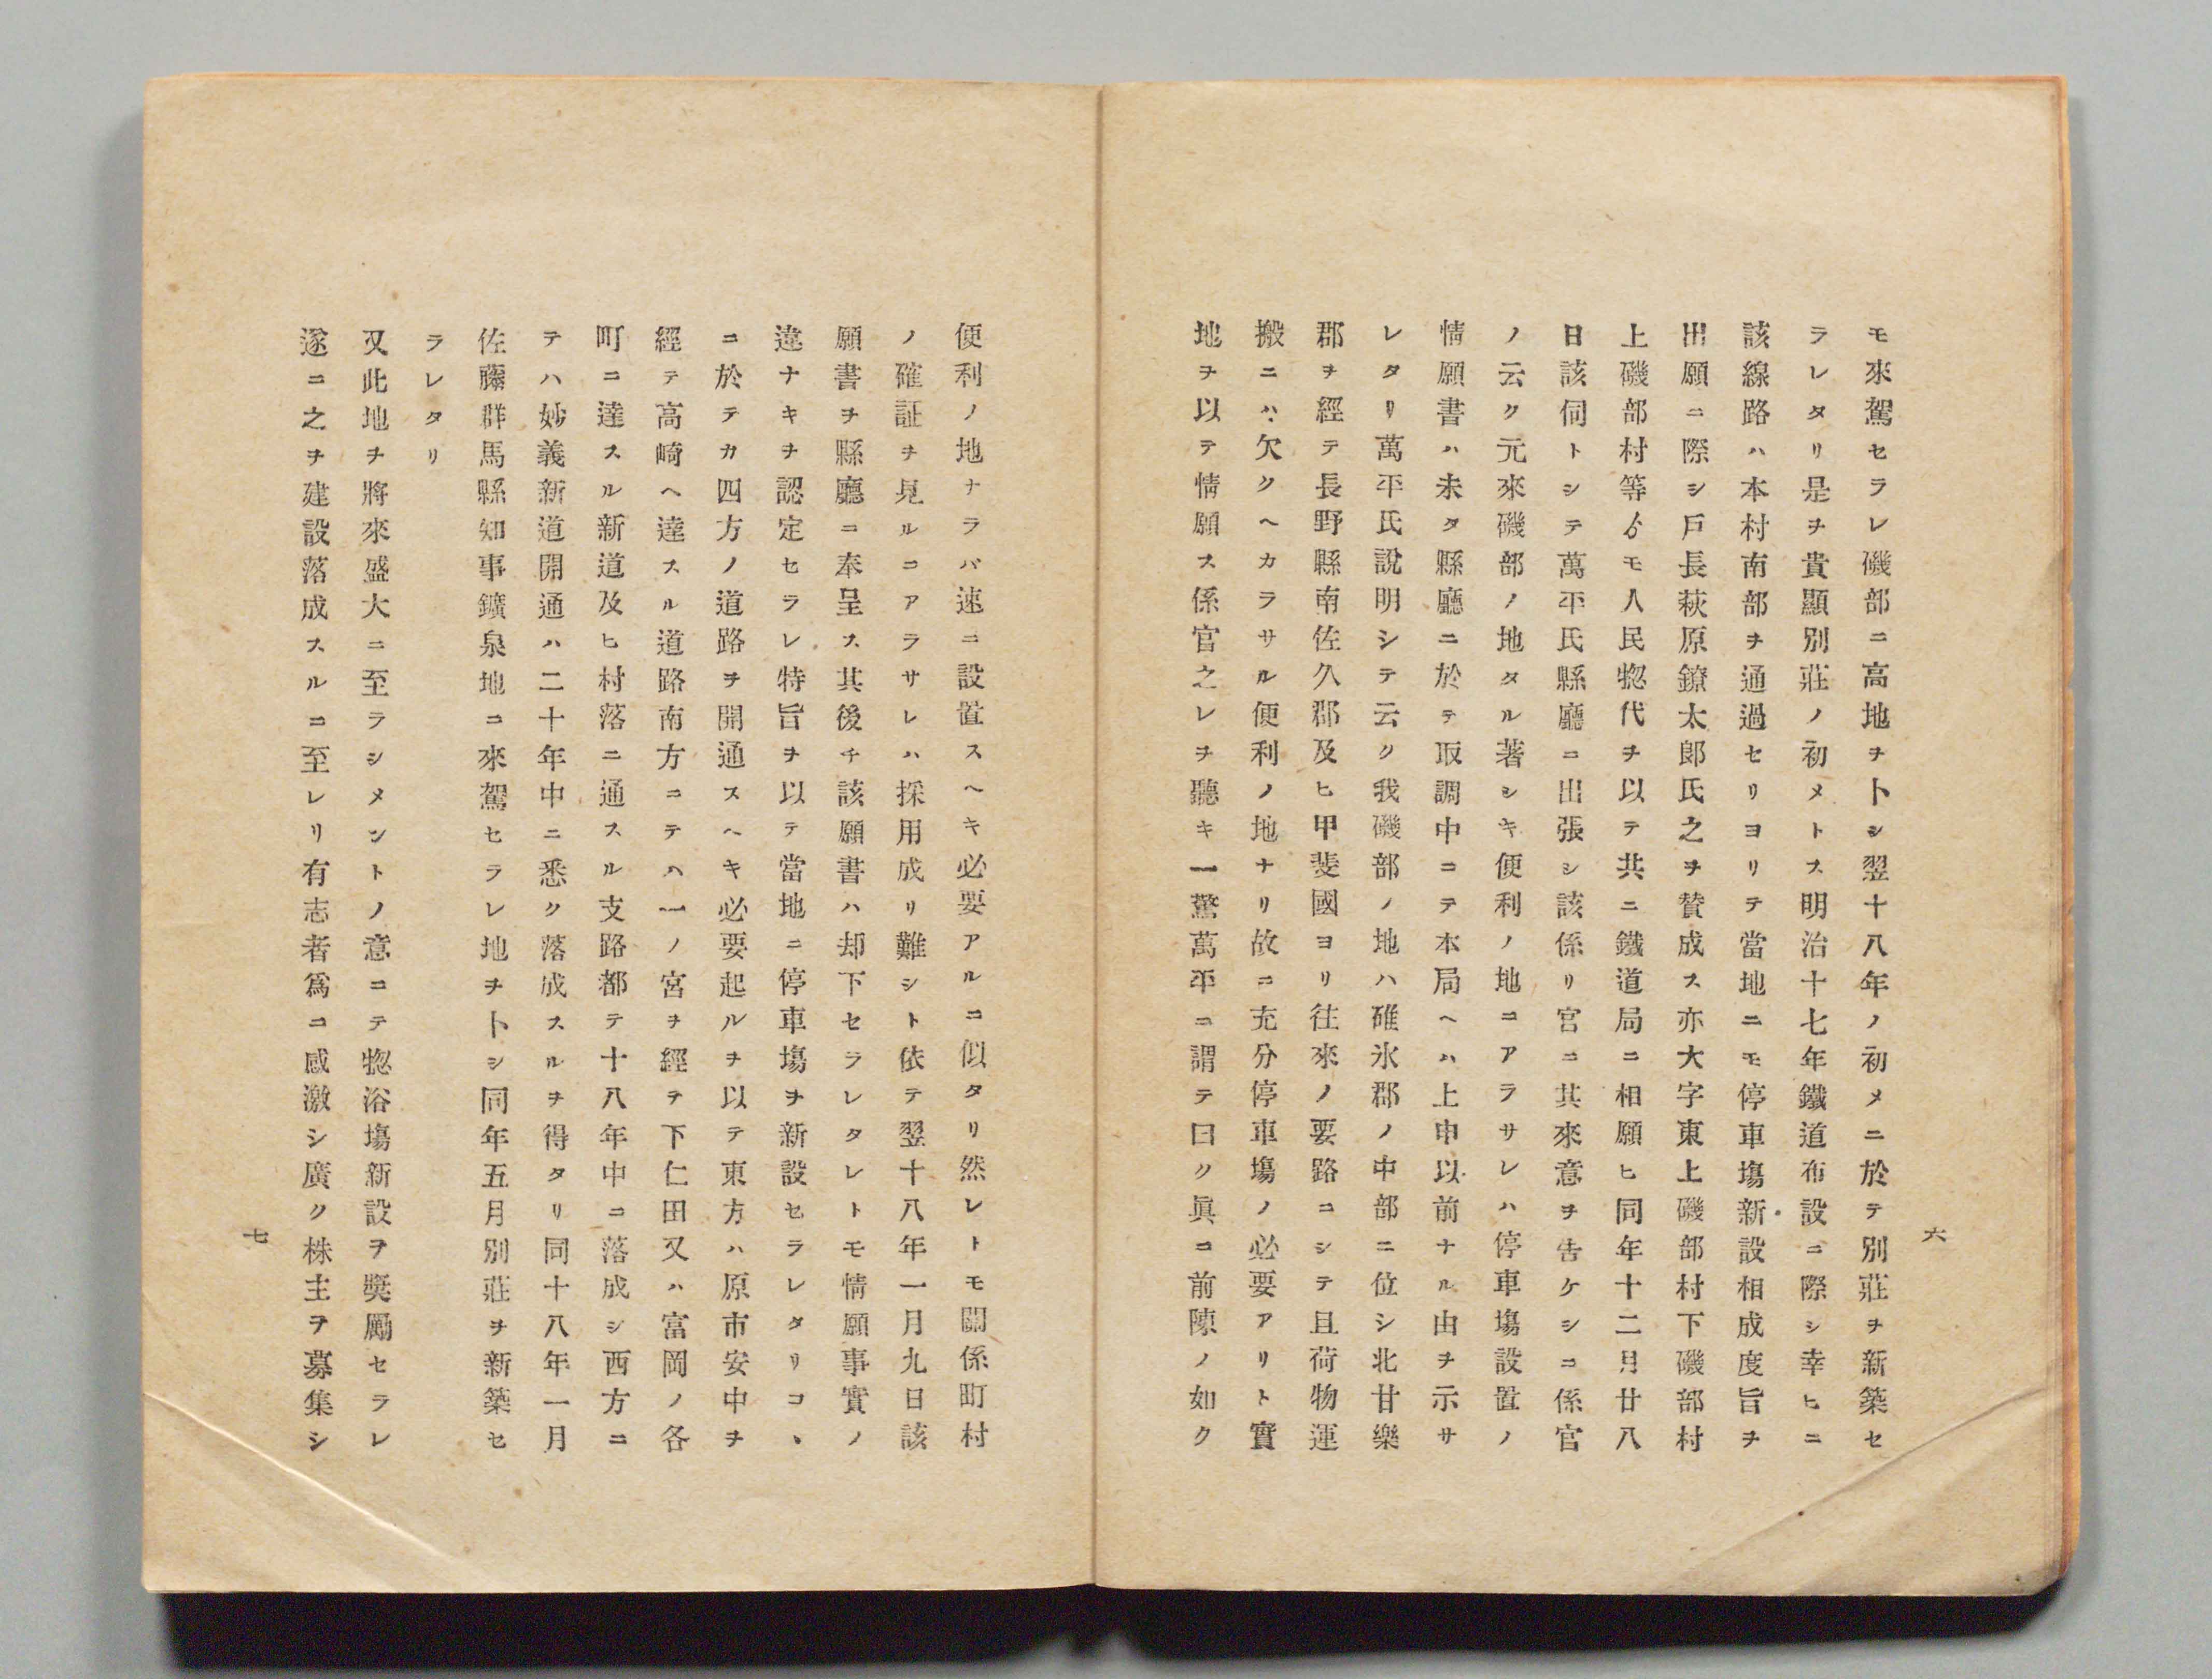 六
モ來駕セラレ磯部ニ高地ヲトシ翌十八年ノ初メニ於テ別莊ヲ新築セ
ラレタリ是ヲ貴顯別莊ノ初メトス明治十七年鐵道布設ニ際シ幸ヒニ
該線路ハ本村南部ヲ通過セリヨリテ當地ニモ停車塲新設相成度旨ヲ
出願ニ際シ戸長萩原鐐太郎氏之ヲ賛成ス亦大字東上磯部村下磯部村
上磯部村等ゟモ人民惣代ヲ以テ共ニ鐵道局ニ相願ヒ同年十二月廿八
日該伺トシテ萬平氏縣廳ニ出張シ該係リ官ニ其來意ヲ告ケシニ係官
ノ云ク元來磯部ノ地タル著シキ便利ノ地ニアラサレハ停車塲設置ノ
情願書ハ未タ縣廳ニ於テ取調中ニテ本局ヘハ上申以前ナル由ヲ示サ
レタリ萬平氏說明シテ云ク我磯部ノ地ハ碓氷郡ノ中部ニ位シ北甘樂
郡ヲ經テ長野縣南佐久郡及ヒ甲斐國ヨリ往來ノ要路ニシテ且荷物運
搬ニハ欠クヘカラサル便利ノ地ナリ故ニ充分停車塲ノ必要アリト實
地ヲ以テ情願ス係官之レヲ聽キ一驚萬平ニ謂テ曰ク眞ニ前陳ノ如ク
便利ノ地ナラバ速ニ設置スヘキ必要アルニ似タリ然レトモ關係町村
ノ確証ヲ見ルニアラサレハ採用成リ難シト依テ翌十八年一月九日該
願書ヲ縣廳ニ奉呈ス其後チ該願書ハ却下セラレタレトモ情願事實ノ
違ナキヲ認定セラレ特旨ヲ以テ當地ニ停車塲ヲ新設セラレタリコヽ
ニ於テカ四方ノ道路ヲ開通スヘキ必要起ルヲ以テ東方ハ原市安中ヲ
經テ高崎ヘ達スル道路南方ニテハ一ノ宮ヲ經テ下仁田又ハ富岡ノ各
町ニ達スル新道及ヒ村落ニ通スル支路都テ十八年中ニ落成シ西方ニ
テハ妙義新道開通ハ二十年中ニ悉ク落成スルヲ得タリ同十八年一月
佐藤群馬縣知事鑛泉地ニ來駕セラレ地ヲトシ同年五月別莊ヲ新築セ
ラレタリ
又此地ヲ將來盛大ニ至ラシメントノ意ニテ惣浴塲新設ヲ奬勵セラレ
遂ニ之ヲ建設落成スルニ至レリ有志者爲ニ感激シ廣ク株主ヲ募集シ
七